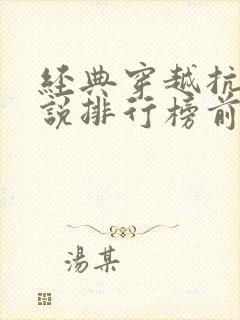 經典穿越抗
說排行榜前
湯某